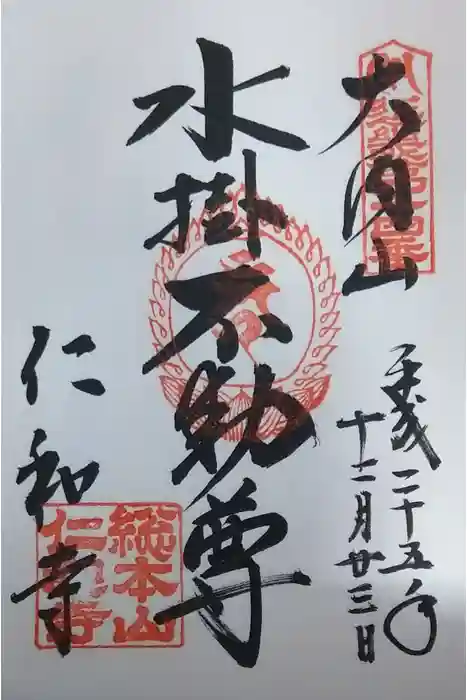 大内山
平成二十五年
十二月廿三日
水掛不動尊
仁和寺
総本山
仁和寺